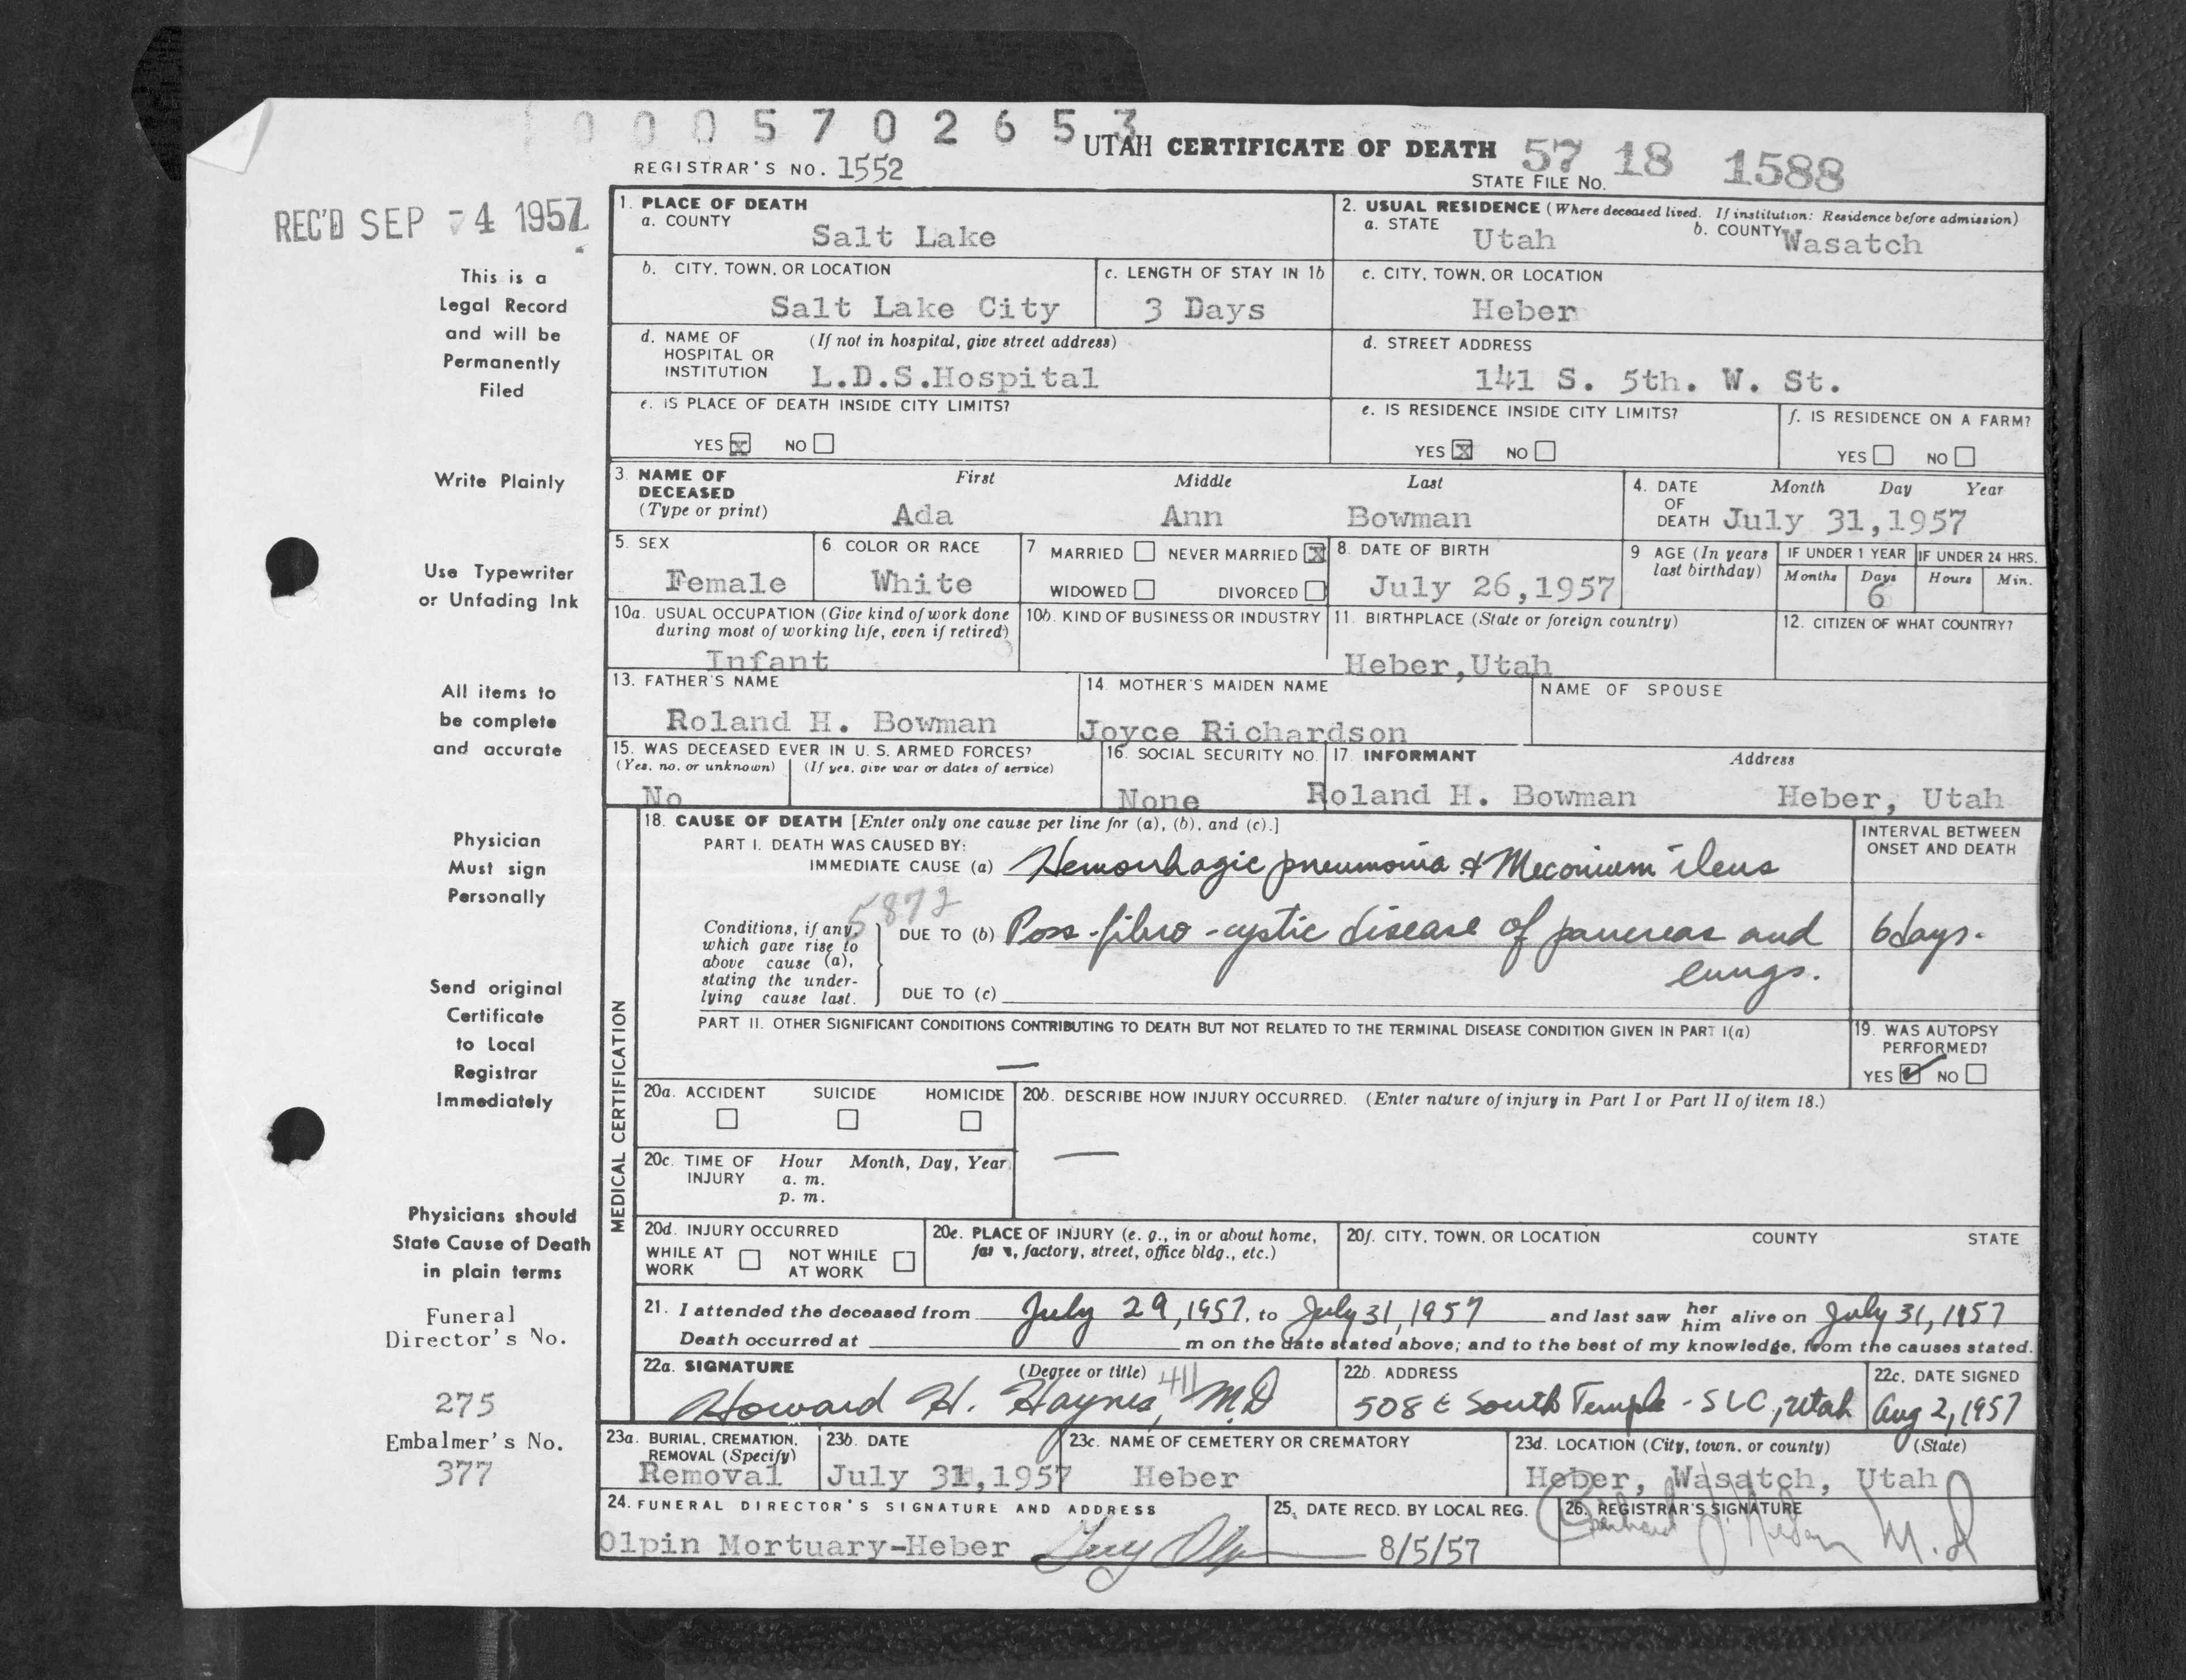 0 0 0 5 7 0 2 6 5 3
UTAH CERTIFICATE OF DEATH 57 18 1588
REGISTRAR'S NO. 1552
STATE FILE NO.
REC'D SEP 4 1957
This is a
Legal Record
and will be
Permanently
Filed
Write Plainly
Use Typewriter
or Unfading Ink
All items to
be complete
and accurate
Physician
Must sign
Personally
Send original
Certificate
to Local
Registrar
Immediately
Physicians should
State Cause of Death
in plain terms
Funeral
Director's No.
275
Embalmer's No.
377
1. PLACE OF DEATH
a. COUNTY
Salt Lake
2. USUAL RESIDENCE (Where deceased lived. If institution: Residence before admission)
a. STATE Utah b. COUNTY Wasatch
b. CITY, TOWN, OR LOCATION
Salt Lake City
c. LENGTH OF STAY IN 1b
3 Days
c. CITY, TOWN, OR LOCATION
Heber
d. NAME OF (If not in hospital, give street address)
HOSPITAL OR
INSTITUTION L.D.S.Hospital
d. STREET ADDRESS
141 S. 5th. W. St.
e. IS PLACE OF DEATH INSIDE CITY LIMITS?
YES x NO
e. IS RESIDENCE INSIDE CITY LIMITS?
YES X NO
f. IS RESIDENCE ON A FARM?
YES NO
3. NAME OF First Middle Last
DECEASED
(Type or print) Ada Ann Bowman
4. DATE Month Day Year
OF
DEATH July 31,1957
5. SEX
Female
6 COLOR OR RACE
White
7 MARRIED NEVER MARRIED X
WIDOWED DIVORCED
8. DATE OF BIRTH
July 26,1957
9 AGE (In years
last birthday)
IF UNDER 1 YEAR
Months Days
6
IF UNDER 24 HRS.
Hours Min.
10a. USUAL OCCUPATION (Give kind of work done
during most of working life, even if retired)
Infant
10b. KIND OF BUSINESS OR INDUSTRY
11. BIRTHPLACE (State or foreign country)
Heber,Utah
12. CITIZEN OF WHAT COUNTRY?
13. FATHER'S NAME
Roland H. Bowman
14. MOTHER'S MAIDEN NAME
Joyce Richardson
NAME OF SPOUSE
15. WAS DECEASED EVER IN U. S. ARMED FORCES?
(Yes, no, or unknown) (If yes, give war or dates of service)
No
16. SOCIAL SECURITY NO.
None
17. INFORMANT Address
Roland H. Bowman Heber, Utah
MEDICAL CERTIFICATION
18. CAUSE OF DEATH [Enter only one cause per line for (a), (b), and (c).]
PART I. DEATH WAS CAUSED BY:
IMMEDIATE CAUSE (a) Hemorrhagic pneumonia & Meconium ileus
INTERVAL BETWEEN
ONSET AND DEATH
5872
Conditions, if any,
which gave rise to
above cause (a),
stating the under-
lying cause last.
DUE TO (b) Poss-fibro-cystic disease of pancreas and
lungs.
6 days.
DUE TO (c)
PART II. OTHER SIGNIFICANT CONDITIONS CONTRIBUTING TO DEATH BUT NOT RELATED TO THE TERMINAL DISEASE CONDITION GIVEN IN PART I(a)
—
19. WAS AUTOPSY
PERFORMED?
YES ✓ NO
20a. ACCIDENT SUICIDE HOMICIDE
20b. DESCRIBE HOW INJURY OCCURRED. (Enter nature of injury in Part I or Part II of item 18.)
—
20c. TIME OF Hour Month, Day, Year
INJURY a. m.
p. m.
20d. INJURY OCCURRED
WHILE AT NOT WHILE
WORK AT WORK
20e. PLACE OF INJURY (e. g., in or about home,
farm, factory, street, office bldg., etc.)
20f. CITY, TOWN, OR LOCATION COUNTY STATE
21. I attended the deceased from July 29, 1957, to July 31, 1957 and last saw her him alive on July 31, 1957
Death occurred at m on the date stated above; and to the best of my knowledge, from the causes stated.
22a. SIGNATURE (Degree or title) 411
Howard H. Haynes, M.D
22b. ADDRESS
508 E South Temple - SLC, Utah
22c. DATE SIGNED
Aug 2, 1957
23a. BURIAL, CREMATION,
REMOVAL (Specify)
Removal
23b. DATE
July 31,1957
23c. NAME OF CEMETERY OR CREMATORY
Heber
23d. LOCATION (City, town, or county) (State)
Heber, Wasatch, Utah
24. FUNERAL DIRECTOR'S SIGNATURE AND ADDRESS
Olpin Mortuary-Heber
25. DATE RECD. BY LOCAL REG.
8/5/57
26. REGISTRAR'S SIGNATURE
M.D